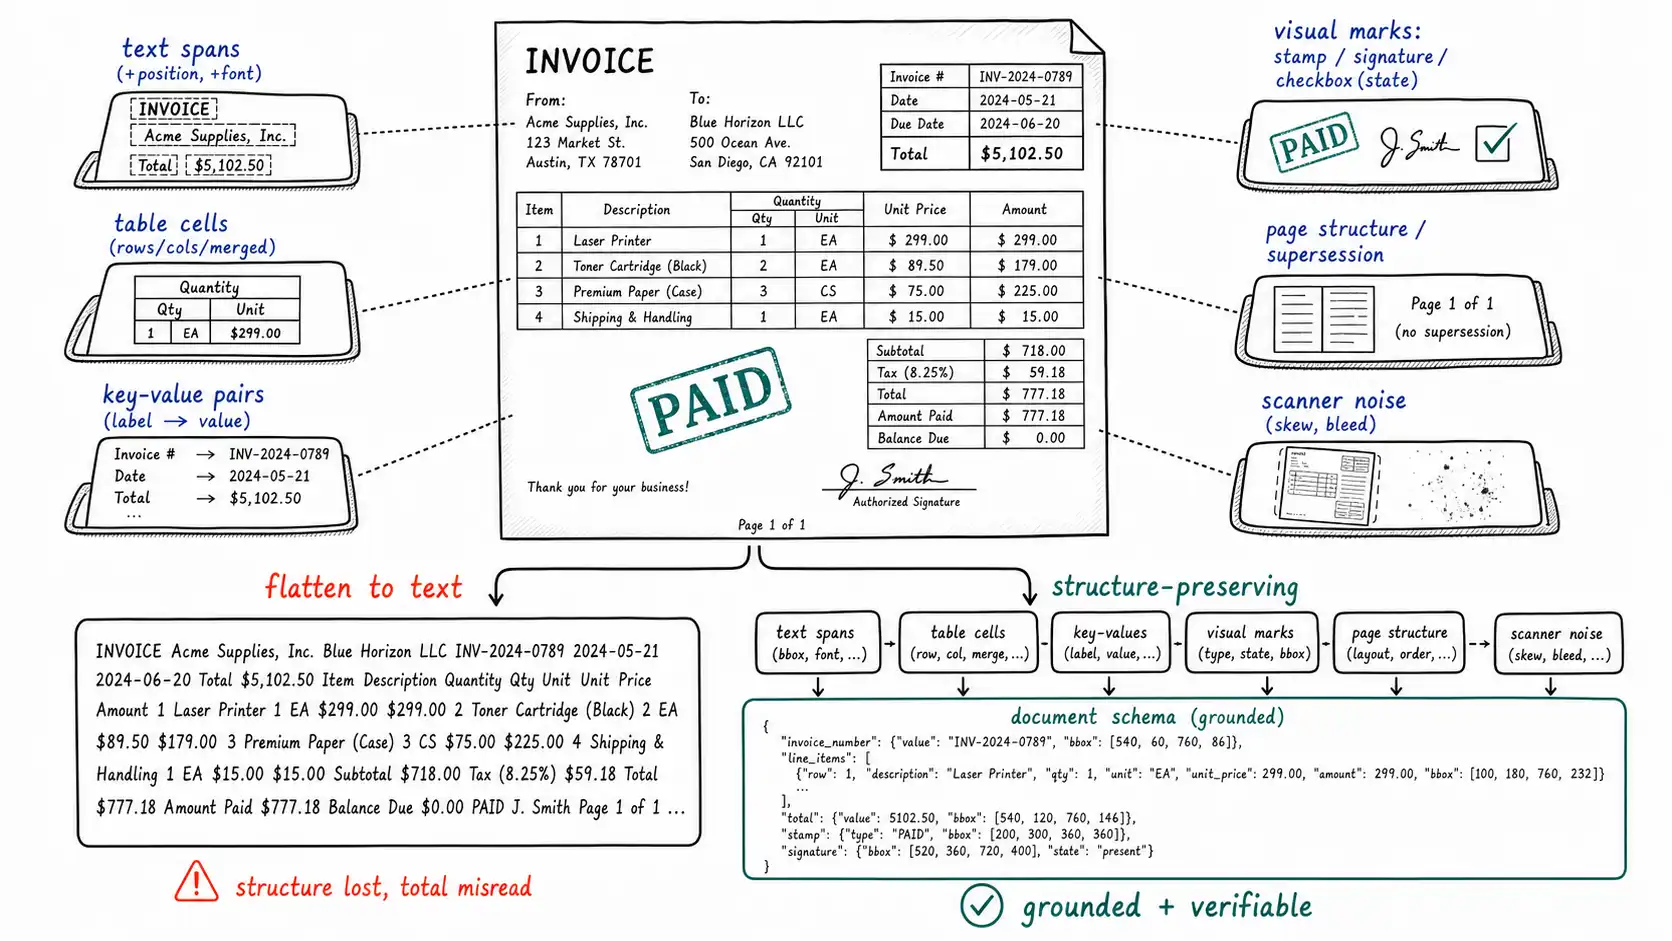 text spans
(+position, +font)
INVOICE
Acme Supplies, Inc.
Total $5,102.50
table cells
(rows/cols/merged)
Quantity
Qty Unit
1 EA $299.00
key-value pairs
(label → value)
Invoice # → INV-2024-0789
Date → 2024-05-21
Total → $5,102.50
...
INVOICE
From:
Acme Supplies, Inc.
123 Market St.
Austin, TX 78701
To:
Blue Horizon LLC
500 Ocean Ave.
San Diego, CA 92101
Invoice # INV-2024-0789
Date 2024-05-21
Due Date 2024-06-20
Total $5,102.50
Item Description Quantity Unit Price Amount
Qty Unit
1 Laser Printer 1 EA $ 299.00 $ 299.00
2 Toner Cartridge (Black) 2 EA $ 89.50 $ 179.00
3 Premium Paper (Case) 3 CS $ 75.00 $ 225.00
4 Shipping & Handling 1 EA $ 15.00 $ 15.00
Subtotal $ 718.00
Tax (8.25%) $ 59.18
Total $ 777.18
Amount Paid $ 777.18
Balance Due $ 0.00
PAID
J. Smith
Authorized Signature
Thank you for your business!
Page 1 of 1
visual marks:
stamp / signature /
checkbox (state)
PAID J. Smith
page structure /
supersession
Page 1 of 1
(no supersession)
scanner noise
(skew, bleed)
flatten to text
INVOICE Acme Supplies, Inc. Blue Horizon LLC INV-2024-0789 2024-05-21
2024-06-20 Total $5,102.50 Item Description Quantity Qty Unit Unit Price
Amount 1 Laser Printer 1 EA $299.00 $299.00 2 Toner Cartridge (Black) 2 EA
$89.50 $179.00 3 Premium Paper (Case) 3 CS $75.00 $225.00 4 Shipping &
Handling 1 EA $15.00 $15.00 Subtotal $718.00 Tax (8.25%) $59.18 Total
$777.18 Amount Paid $777.18 Balance Due $0.00 PAID J. Smith Page 1 of 1 ...
structure lost, total misread
structure-preserving
text spans
(bbox, font, ...)
table cells
(row, col, merge, ...)
key-values
(label, value, ...)
visual marks
(type, state, bbox)
page structure
(layout, order, ...)
scanner noise
(skew, bleed, ...)
document schema (grounded)
{
"invoice_number": {"value": "INV-2024-0789", "bbox": [540, 60, 760, 86]},
"line_items": [
{"row": 1, "description": "Laser Printer", "qty": 1, "unit": "EA", "unit_price": 299.00, "amount": 299.00, "bbox": [100, 180, 760, 232]}
...
],
"total": {"value": 5102.50, "bbox": [540, 120, 760, 146]},
"stamp": {"type": "PAID", "bbox": [200, 300, 360, 360]},
"signature": {"bbox": [520, 360, 720, 400], "state": "present"}
}
grounded + verifiable